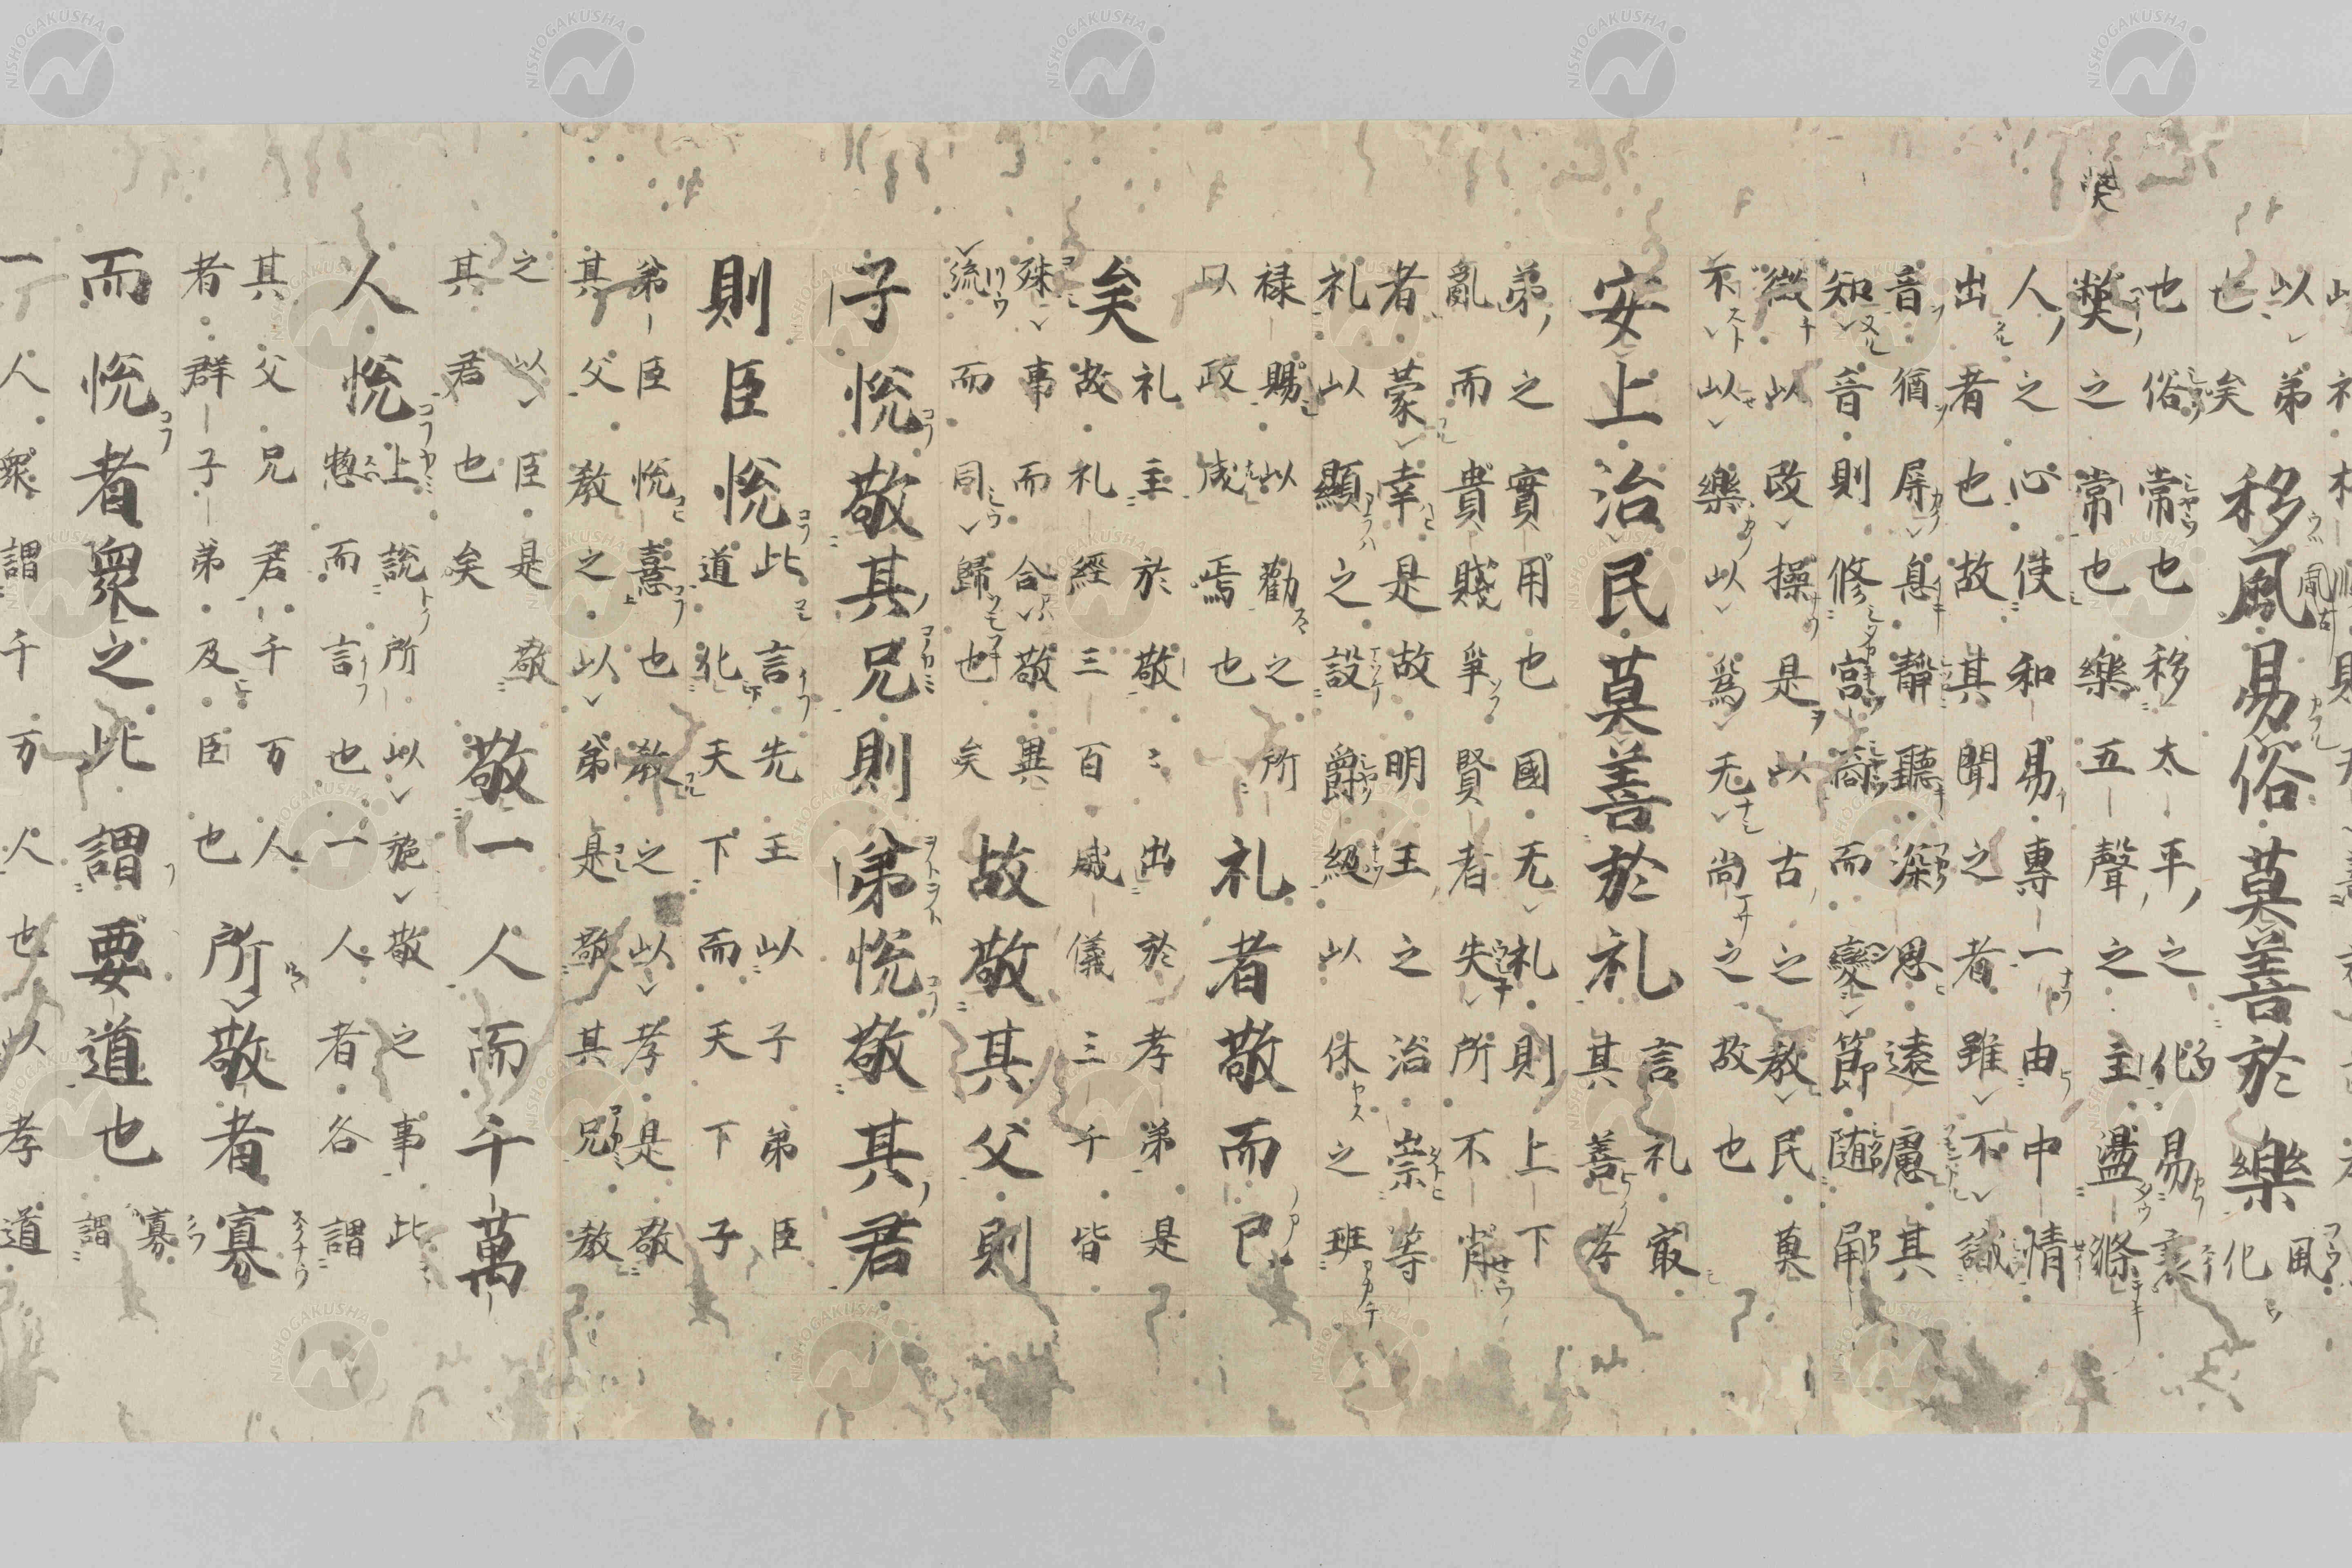 弊
以弟
也矣
移風易俗莫善於樂
風
化
也俗常也移太平之化易衰
弊之常也樂五聲之主盪滌
人之心使和易專一由中情
出者也故其聞之者雖不識
音猶屏息靜聽深思遠慮其
知音則修宮商而變節随角
徵以改操是以古之教民莫
不以樂以爲无尚之故也
安上治民莫善於礼
言礼冣
其善孝
弟之實用也國无礼則上下
亂而貴賤爭賢者失所不肖
者蒙幸是故明王之治崇等
礼以顯之設爵級以休之班
禄賜以勸之所
以政成焉也
礼者敬而已
矣
礼主於敬〻出於孝弟是
故礼經三百威儀三千皆
殊事而合敬異
流而同歸也矣
故敬其父則
子悅敬其兄則弟悅敬其君
則臣悅
此言先王以子弟臣
道化天下而天下子
弟臣悅憙也教之以孝是敬
其父教之以弟是敬其兄教
之以臣是敬
其君也矣
敬一人而千萬
人悅
上說所以施敬之事此
惣而言也一人者各謂
其父兄君千万人
者群子弟及臣也
所敬者寡
而悅者衆之此謂要道也
寡
謂
一人衆謂千万人也以孝道